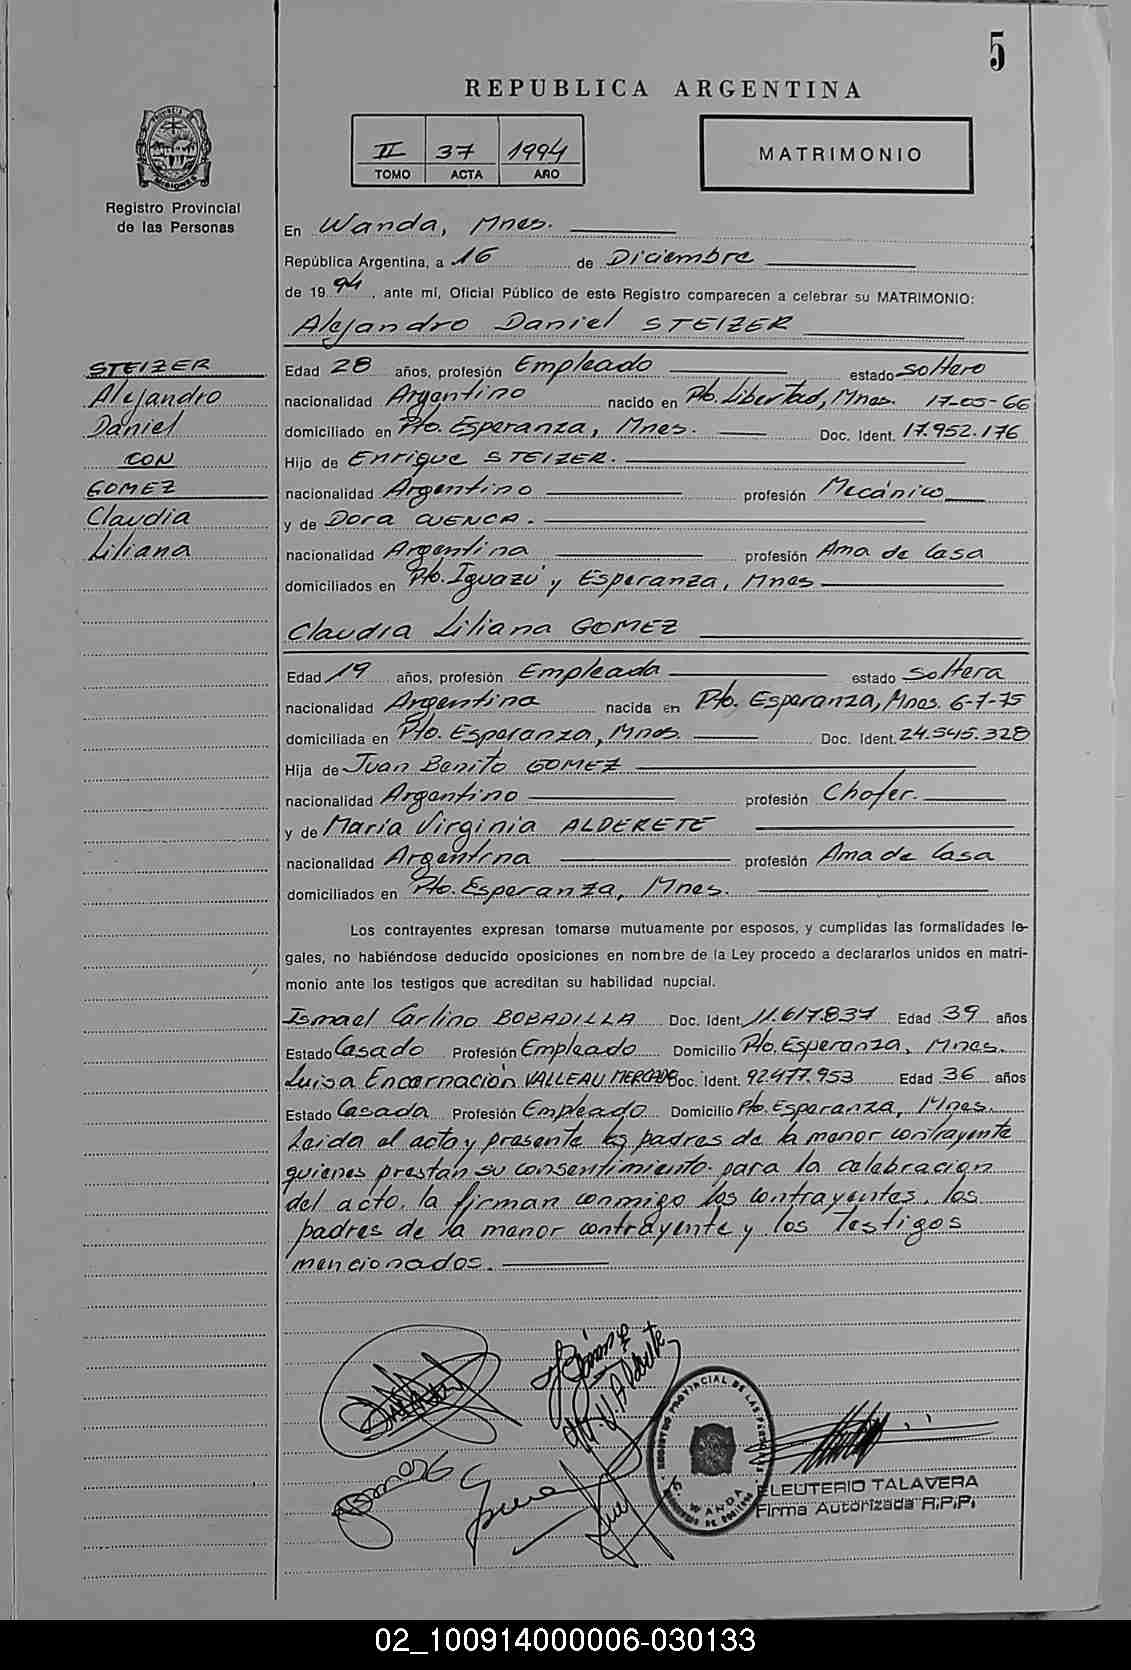 5
REPUBLICA ARGENTINA
II 37 1994
TOMO ACTA AÑO
MATRIMONIO
PROVINCIA DE
MISIONES
Registro Provincial
de las Personas
En Wanda, Mnes.
República Argentina, a 16 de Diciembre
de 1994, ante mí, Oficial Público de este Registro comparecen a celebrar su MATRIMONIO:
Alejandro Daniel STEIZER
STEIZER
Alejandro
Daniel
CON
GOMEZ
Claudia
Liliana
Edad 28 años, profesión Empleado estado soltero
nacionalidad Argentino nacido en Pto. Libertad, Mnes. 17-05-66
domiciliado en Pto. Esperanza, Mnes. Doc. Ident. 17.952.176
Hijo de Enrique STEIZER.
nacionalidad Argentino profesión Mecánico
y de Dora CUENCA.
nacionalidad Argentina profesión Ama de Casa
domiciliados en Pto. Iguazú y Esperanza, Mnes
Claudia Liliana GOMEZ
Edad 19 años, profesión Empleada estado soltera
nacionalidad Argentina nacida en Pto. Esperanza, Mnes. 6-7-75
domiciliada en Pto. Esperanza, Mnes. Doc. Ident. 24.545.328
Hija de Juan Benito GOMEZ
nacionalidad Argentino profesión Chofer.
y de María Virginia ALDERETE
nacionalidad Argentina profesión Ama de Casa
domiciliados en Pto. Esperanza, Mnes.
Los contrayentes expresan tomarse mutuamente por esposos, y cumplidas las formalidades le-
gales, no habiéndose deducido oposiciones en nombre de la Ley procedo a declararlos unidos en matri-
monio ante los testigos que acreditan su habilidad nupcial.
Ismael Carlino BOBADILLA Doc. Ident. 11.617.837 Edad 39 años
Estado Casado Profesión Empleado Domicilio Pto. Esperanza, Mnes.
Luisa Encarnación VALLEAU MERCADO Doc. Ident. 92.477.953 Edad 36 años
Estado Casada Profesión Empleado Domicilio Pto. Esperanza, Mnes.
Leida el acta y presente los padres de la menor contrayente
quienes prestan su consentimiento para la celebración
del acto, la firman conmigo los contrayentes, los
padres de la menor contrayente y los testigos
mencionados.
REGISTRO PROVINCIAL DE LAS PERSONAS
WANDA
ELEUTERIO TALAVERA
Firma Autorizada R.P.P.
02_100914000006-030133